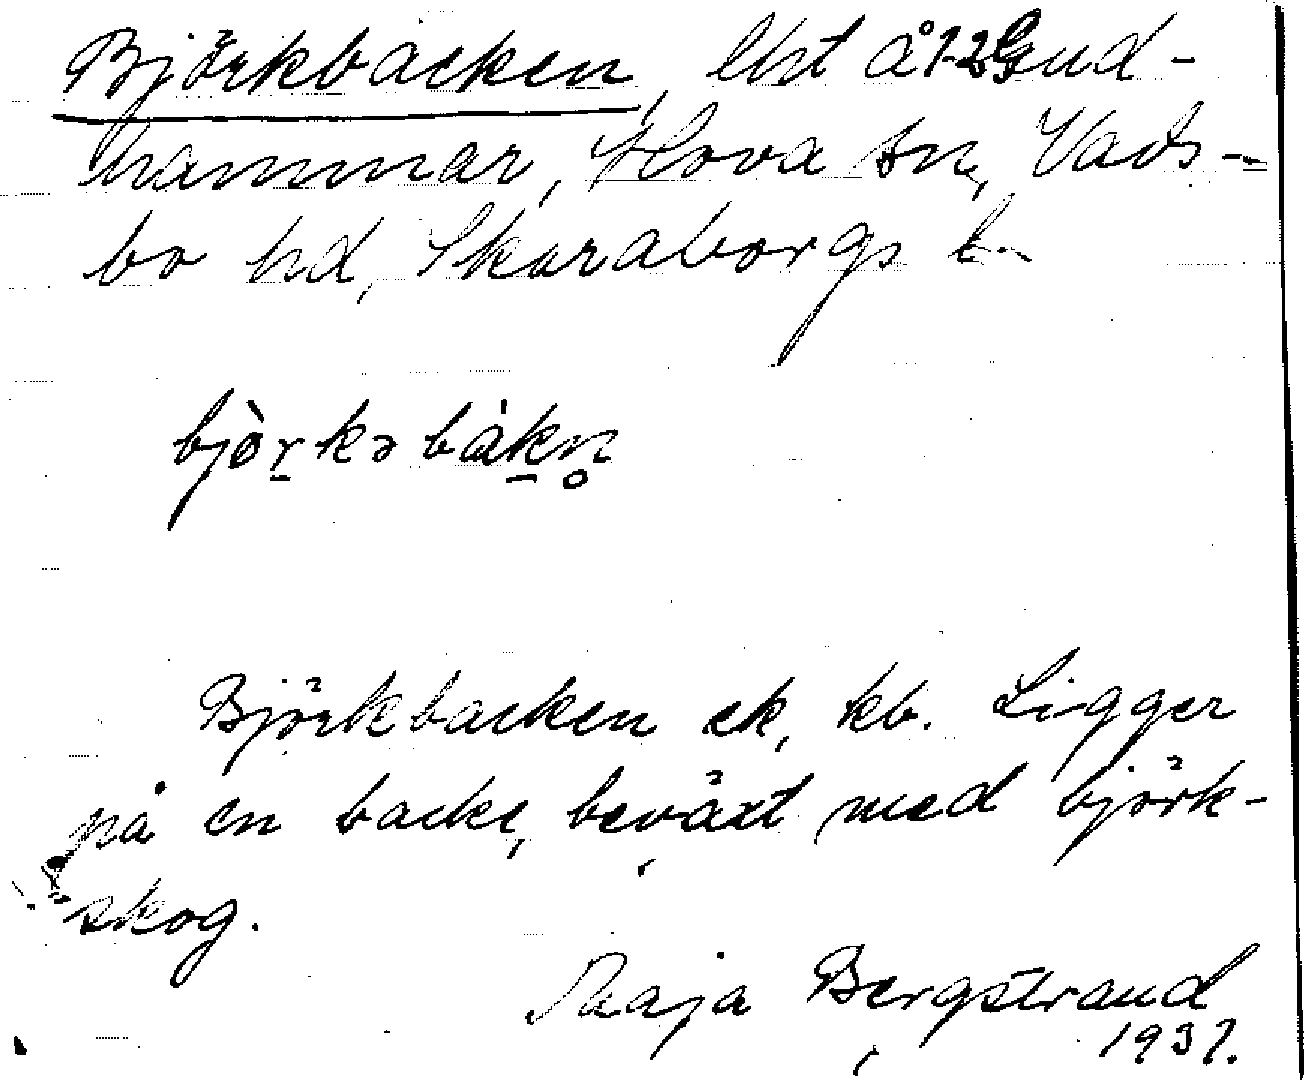 Björkbacken, lht å 1-2 Gud-
hammar, Hova sn, Vads-
bo hd, Skaraborgs l.
bjòrkəbákn̥
Björkbacken ek, kb. Ligger
på en backe, beväxt med björk-
skog.
Maja Bergstrand
1937.